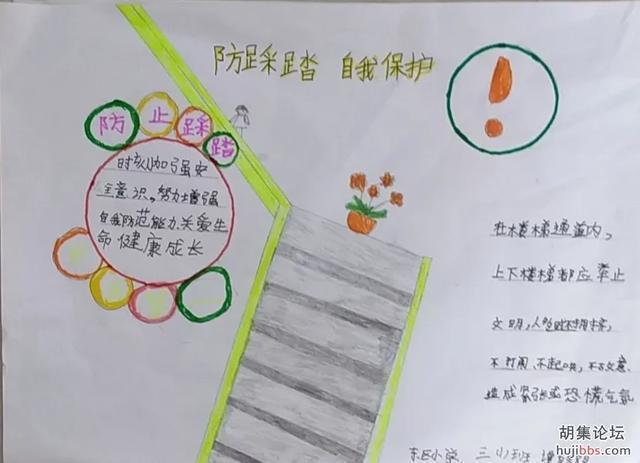 防踩踏 自我保护
防止踩踏
时刻加强安
全意识。努力增强
自我防范能力、关爱生
命健康成长
在楼梯通道内,
上下楼梯都应举止
文明,人多时不拥挤,
不打闹、不起哄,不故意
造成紧张或恐慌气氛
东区小学 三(1)班
胡集论坛
hujibbs.com